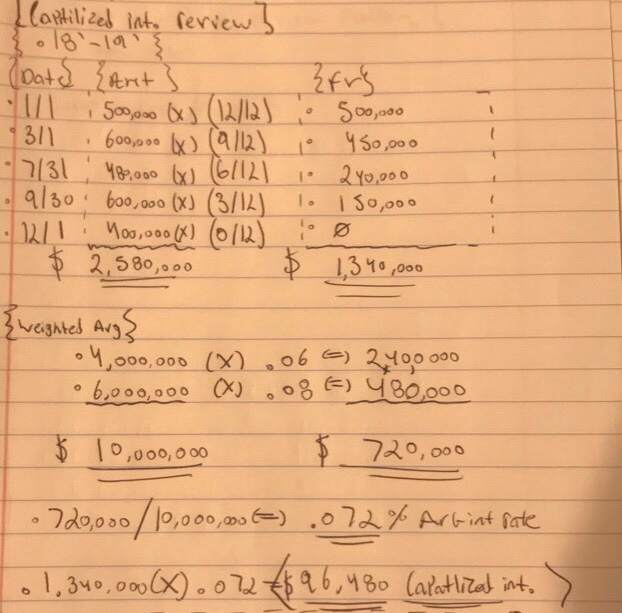 {Captilized int. review}
{ . 18'-19' }
{Date} {Amt} {fr}
. 1/1 : 500,000 (x) (12/12) : 500,000
. 3/1 : 600,000 (x) (9/12) : 450,000
. 7/31 : 480,000 (x) (6/12) : 240,000
. 9/30 : 600,000 (x) (3/12) : 150,000
. 12/1 : 400,000 (x) (0/12) : ø
$ 2,580,000 $ 1,340,000
{Weighted Avg}
. 4,000,000 (x) .06 (=) 2,40,0000
. 6,000,000 (x) .08 (=) 480,000
$ 10,000,000 $ 720,000
. 720,000/10,000,000 (=) .072% int rate
. 1,340,000 (x) .072 = <$96,480 Capatlized int.>